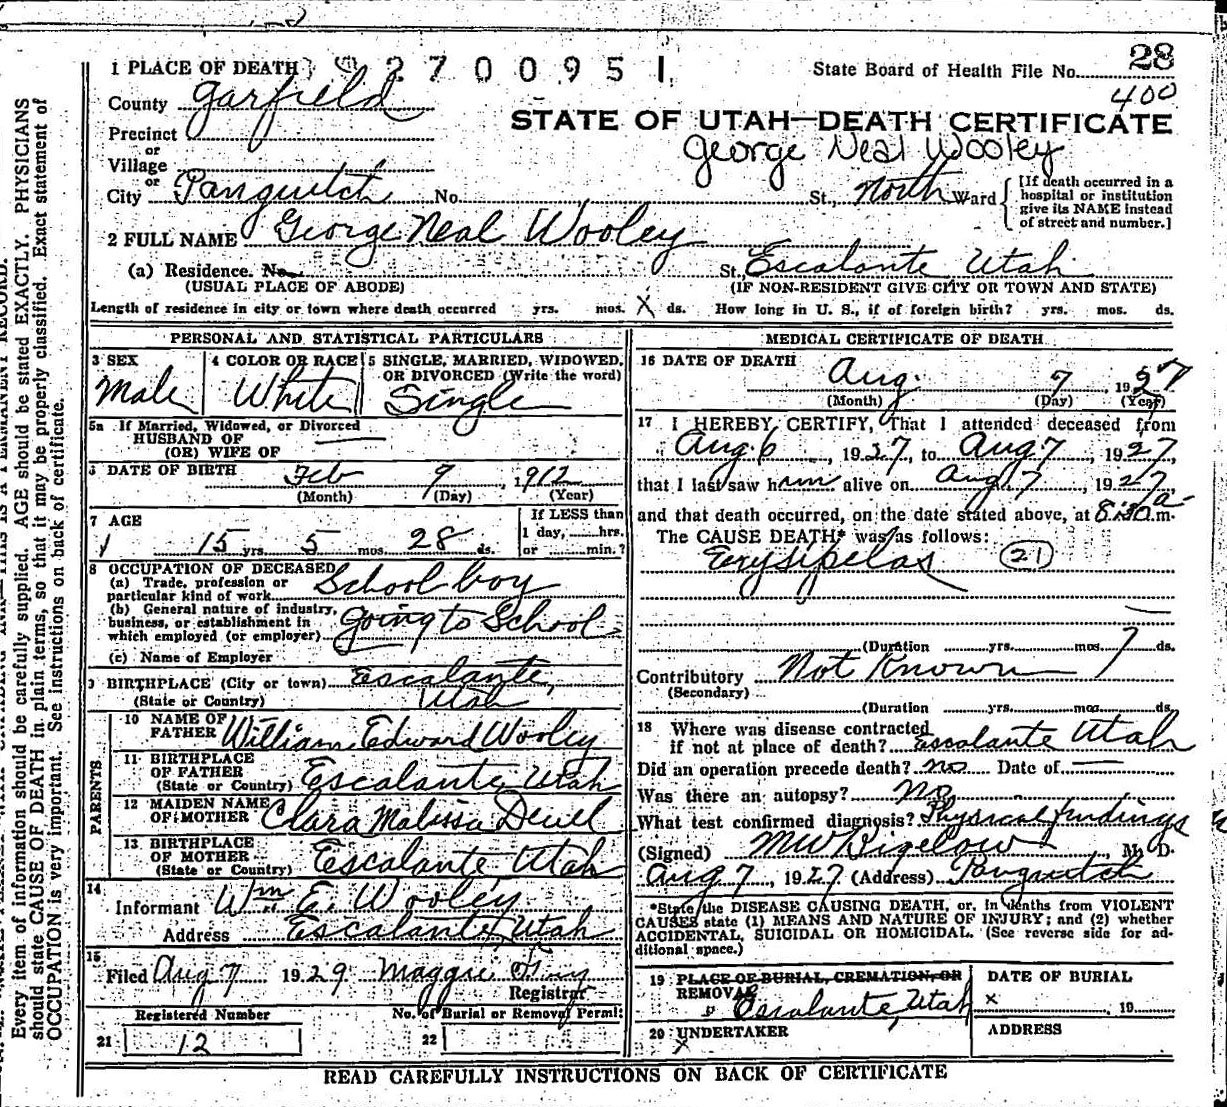 28
1 PLACE OF DEATH 2700951 State Board of Health File No.
400
County Garfield
STATE OF UTAH—DEATH CERTIFICATE
Precinct
George Neal Wooley
or
Village
or
City Panguitch No. St., North Ward [If death occurred in a hospital or institution give its NAME instead of street and number.]
2 FULL NAME George Neal Wooley
(a) Residence. No. St., Escalante Utah
(USUAL PLACE OF ABODE) (IF NON-RESIDENT GIVE CITY OR TOWN AND STATE)
Length of residence in city or town where death occurred yrs. mos. X ds. How long in U. S., if of foreign birth? yrs. mos. ds.
PERSONAL AND STATISTICAL PARTICULARS
3 SEX 4 COLOR OR RACE 5 SINGLE, MARRIED, WIDOWED, OR DIVORCED (Write the word)
Male White Single
5a If Married, Widowed, or Divorced
HUSBAND OF
(OR) WIFE OF
DATE OF BIRTH Feb 9, 1912
(Month) (Day) (Year)
7 AGE If LESS than
15 yrs. 5 mos. 28 ds. 1 day, hrs. or min.?
8 OCCUPATION OF DECEASED
(a) Trade, profession or particular kind of work School boy
(b) General nature of industry, business, or establishment in which employed (or employer) going to School
(c) Name of Employer
BIRTHPLACE (City or town) Escalante,
(State or Country) Utah
PARENTS
10 NAME OF FATHER William Edward Wooley
11 BIRTHPLACE OF FATHER (State or Country) Escalante, Utah
12 MAIDEN NAME OF MOTHER Clara Malissa Deuel
13 BIRTHPLACE OF MOTHER (State or Country) Escalante Utah
14
Informant Wm E. Wooley
Address Escalante, Utah
15
Filed Aug 7 1929 Maggie
Registrar
Registered Number No. of Burial or Removal Permit
21 12 22
MEDICAL CERTIFICATE OF DEATH
16 DATE OF DEATH
Aug. 7 1927
(Month) (Day) (Year)
17 I HEREBY CERTIFY, That I attended deceased from
Aug. 6, 1927, to Aug 7, 1927,
that I last saw him alive on Aug 7, 1927
and that death occurred, on the date stated above, at 8:30 a m.
The CAUSE DEATH* was as follows:
Erysipelas 21
(Duration yrs. mos. 7 ds.
Contributory Not Known
(Secondary)
(Duration yrs. mos. ds.
18 Where was disease contracted
if not at place of death? Escalante Utah
Did an operation precede death? no Date of
Was there an autopsy? no
What test confirmed diagnosis? Physical findings
(Signed) MW Bigelow M. D.
Aug 7, 1927 (Address) Panguitch
*State the DISEASE CAUSING DEATH, or, in deaths from VIOLENT
CAUSES state (1) MEANS AND NATURE OF INJURY; and (2) whether
ACCIDENTAL, SUICIDAL OR HOMICIDAL. (See reverse side for additional space.)
19 PLACE OF BURIAL, CREMATION, OR REMOVAL DATE OF BURIAL
Escalante, Utah x , 19
20 UNDERTAKER ADDRESS
x
READ CAREFULLY INSTRUCTIONS ON BACK OF CERTIFICATE
Every item of information should be carefully supplied. AGE should be stated EXACTLY. PHYSICIANS
should state CAUSE OF DEATH in plain terms, so that it may be properly classified. Exact statement of
OCCUPATION is very important. See instructions on back of certificate.